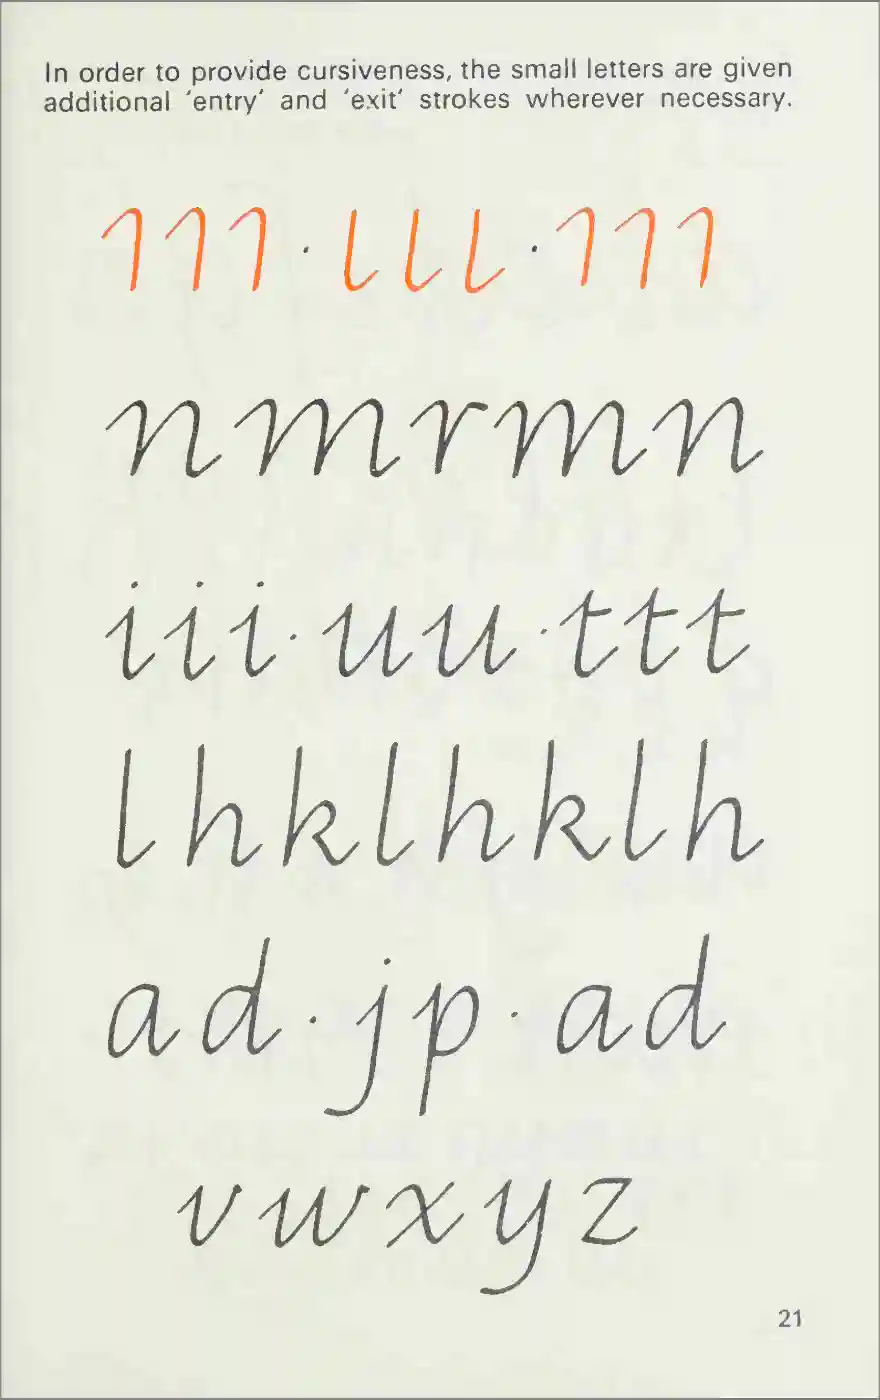 In order to provide cursiveness, the small letters are given
additional 'entry' and 'exit' strokes wherever necessary.
n m r m n
i i i · u u · t t t
l h k l h k l h
a d · j p · a d
v w x y z
21